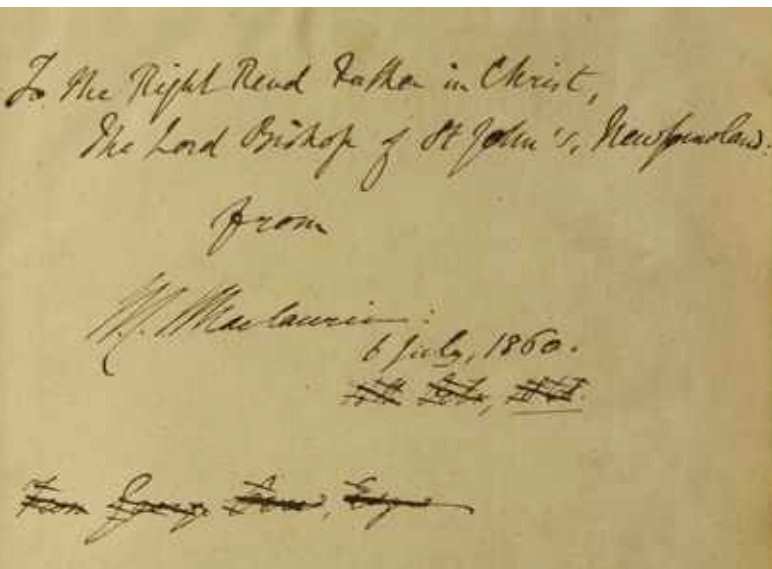 To the Right Revd Father in Christ,
The Lord Bishop of St John's, Newfoundland.
from
W. Maclaurin:
6 July, 1860.
From George